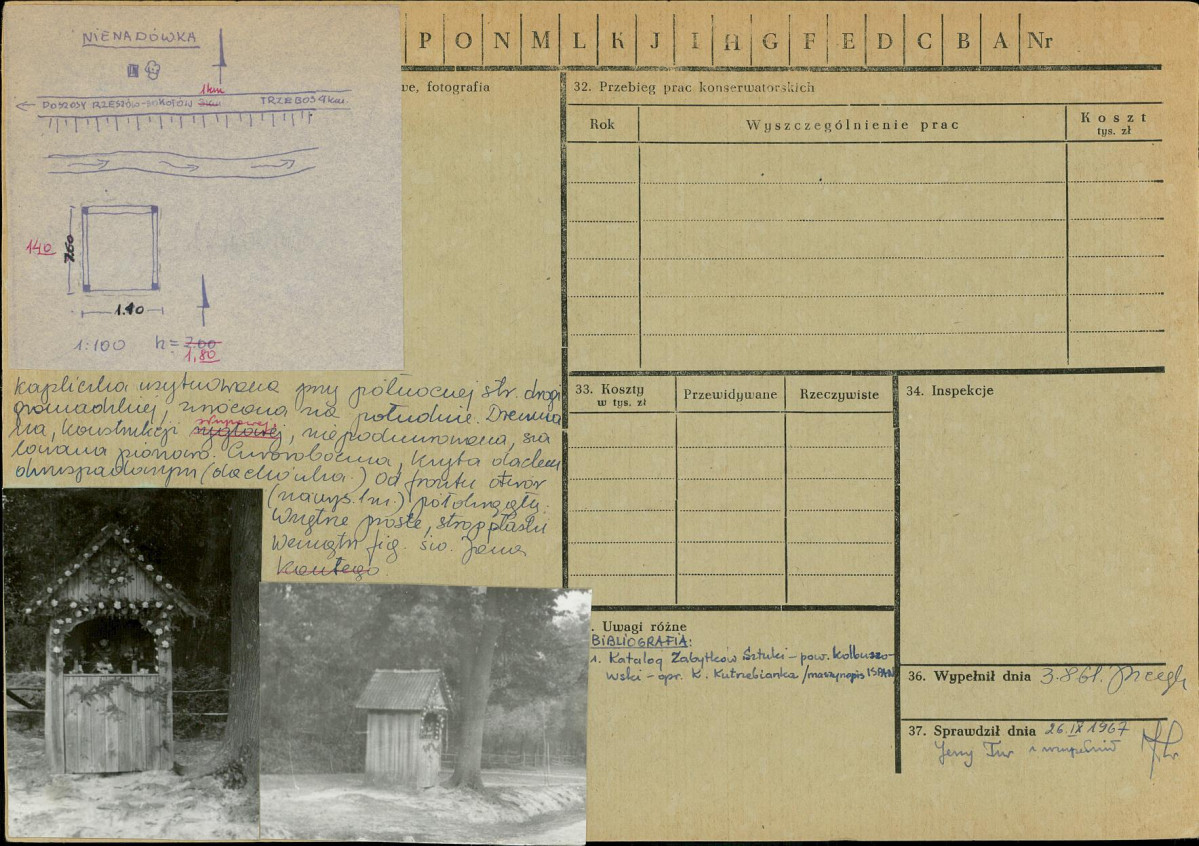 NIENADÓWKA
P O N M L K J I H G F E D C B A Nr
1km
DO SZOSY RZESZÓW-SOKOŁÓW 2km TRZEBOŚ 4km.
140
1.10
1:100 h= 2.00
1,80
we, fotografia
kapliczka usytuowana przy północnej str. drogi
gromadzkiej, zwrócona na południe. Drewnia
na, konstrukcji słupowej, niepodmurowana, sza
lowana pionowo. Czworoboczna, kryta dachem
dwuspadowym (dachówka.) Od frontu otwór
(na wys. 1m.) półokrągły.
Wnętrze proste, strop płaski
Wewnątrz fig. św. Jana
Kantego.
32. Przebieg prac konserwatorskich
Rok Wyszczególnienie prac Koszt
tys. zł
33. Koszty
w tys. zł
Przewidywane Rzeczywiste
34. Inspekcje
. Uwagi różne
BIBLIOGRAFIA:
1. Katalog Zabytków Sztuki - pow. kolbuszo-
wski - opr. K. Kutrzebianka /maszynopis ISPAN
36. Wypełnił dnia
37. Sprawdził dnia 26.IX 1967
Jerzy Tur i uzupełnił